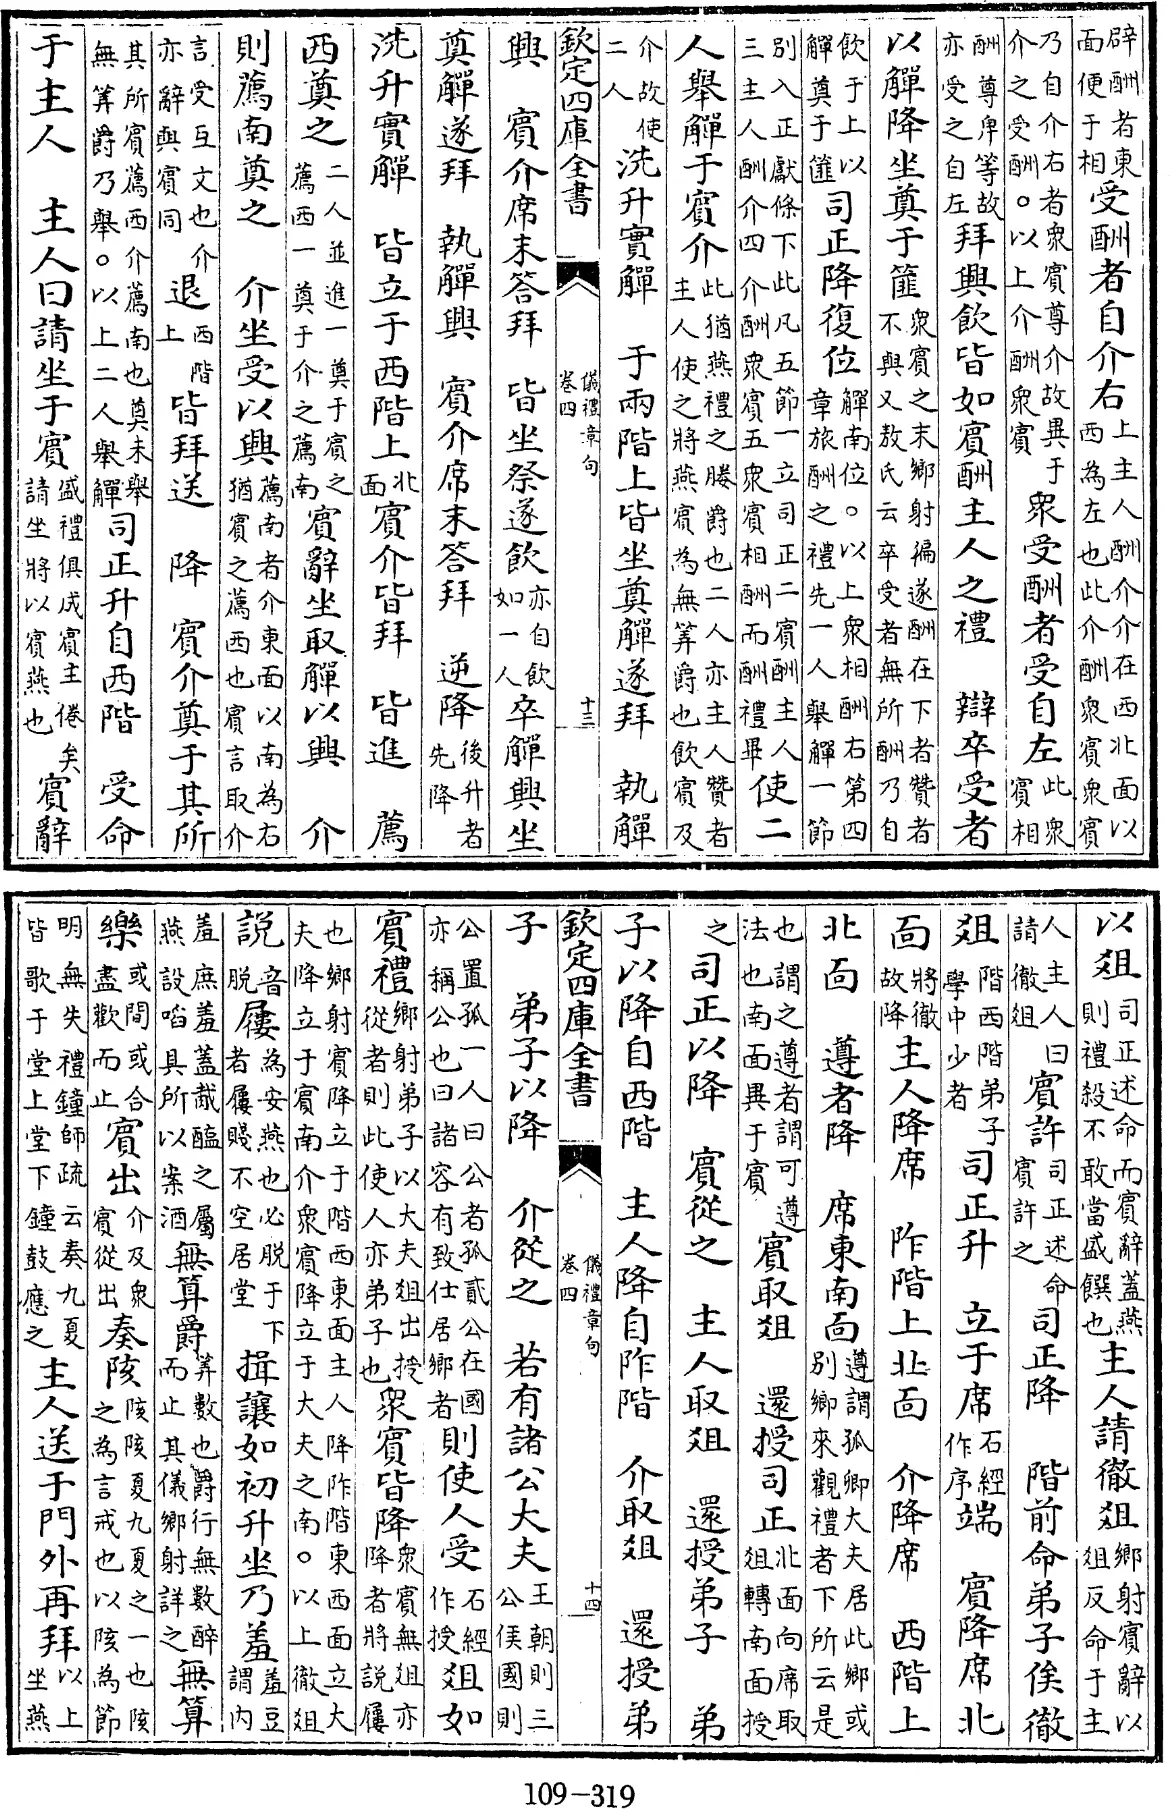 辟酬者東面便于相受酬者自介右上主人酬介介在西北面以西為左也此介酬衆賓衆賓
乃自介右者衆賓尊介故異于介之受酬。以上介酬衆賓衆受酬者受自左此衆賓相
酬尊卑等故亦受之自左拜興飲皆如賓酬主人之禮　辯卒受者
以觶降坐奠于篚衆賓之末鄉射徧遂酬在下者贊者不與又敖氏云卒受者無所酬乃自
飲于上以觶奠于篚司正降復位觶南位。以上衆相酬右第四章旅酬之禮先一人舉觶一節
別入正獻條下此凡五節一立司正二賓酬主人三主人酬介四介酬衆賓五衆賓相酬而酬禮畢使二
人舉觶于賓介此猶燕禮之媵爵也二人亦主人贊者主人使之將燕賓為無筭爵也飲賓及
介故使二人洗升實觶　于兩階上皆坐奠觶遂拜　執觶
欽定四庫全書　儀禮章句卷四　十三
興　賓介席末答拜　皆坐祭遂飲亦自飲如一人卒觶興坐
奠觶遂拜　執觶興　賓介席末答拜　逆降後升者先降
洗升實觶　皆立于西階上北面賓介皆拜　皆進　薦
西奠之二人並進一奠于賓之薦西一奠于介之薦南賓辭坐取觶以興　介
則薦南奠之　介坐受以興薦南者介東面以南為右猶賓之薦西也賓言取介
言受互文也介亦辭與賓同退西階上皆拜送　降　賓介奠于其所
其所賓薦西介薦南也奠未舉無筭爵乃舉。以上二人舉觶司正升自西階　受命
于主人　主人曰請坐于賓盛禮俱成賓主倦矣請坐將以賓燕也賓辭
以俎司正述命而賓辭蓋燕則禮殺不敢當盛饌也主人請徹俎鄉射賓辭以俎反命于主
人主人曰請徹俎賓許司正述命賓許之司正降　階前命弟子俟徹
俎階西階弟子學中少者司正升　立于席石經作序端　賓降席北
面將徹故降主人降席　阼階上北面　介降席　西階上
北面　遵者降　席東南面遵謂孤卿大夫居此鄉或別鄉來觀禮者下所云是
也謂之遵者謂可遵法也南面異于賓賓取俎　還授司正北面向席取俎轉南面授
之司正以降　賓從之　主人取俎　還授弟子　弟
子以降自西階　主人降自阼階　介取俎　還授弟
欽定四庫全書　儀禮章句卷四　十四
子　弟子以降　介從之　若有諸公大夫王朝則三公侯國則
公置孤一人曰公者孤貳公在國亦稱公也曰諸容有致仕居鄉者則使人受石經作授俎如
賓禮鄉射弟子以大夫俎出授從者則此使人亦弟子也衆賓皆降衆賓無俎亦降者將説屨
也鄉射賓降立于階西東面主人降阼階東西面立大夫降立于賓南介衆賓降立于大夫之南。以上徹俎
説音脱屨為安燕也必脱于下者屨賤不空居堂揖讓如初升坐乃羞羞豆謂內
羞庶羞蓋胾醢之屬燕設啗具所以案酒無算爵筭數也爵行無數醉而止其儀鄉射詳之無算
樂或間或合盡歡而止賓出介及衆賓從出奏陔陔陔夏九夏之一也陔之為言戒也以陔為節
明無失禮鐘師疏云奏九夏皆歌于堂上堂下鐘鼓應之主人送于門外再拜以上坐燕
109-319